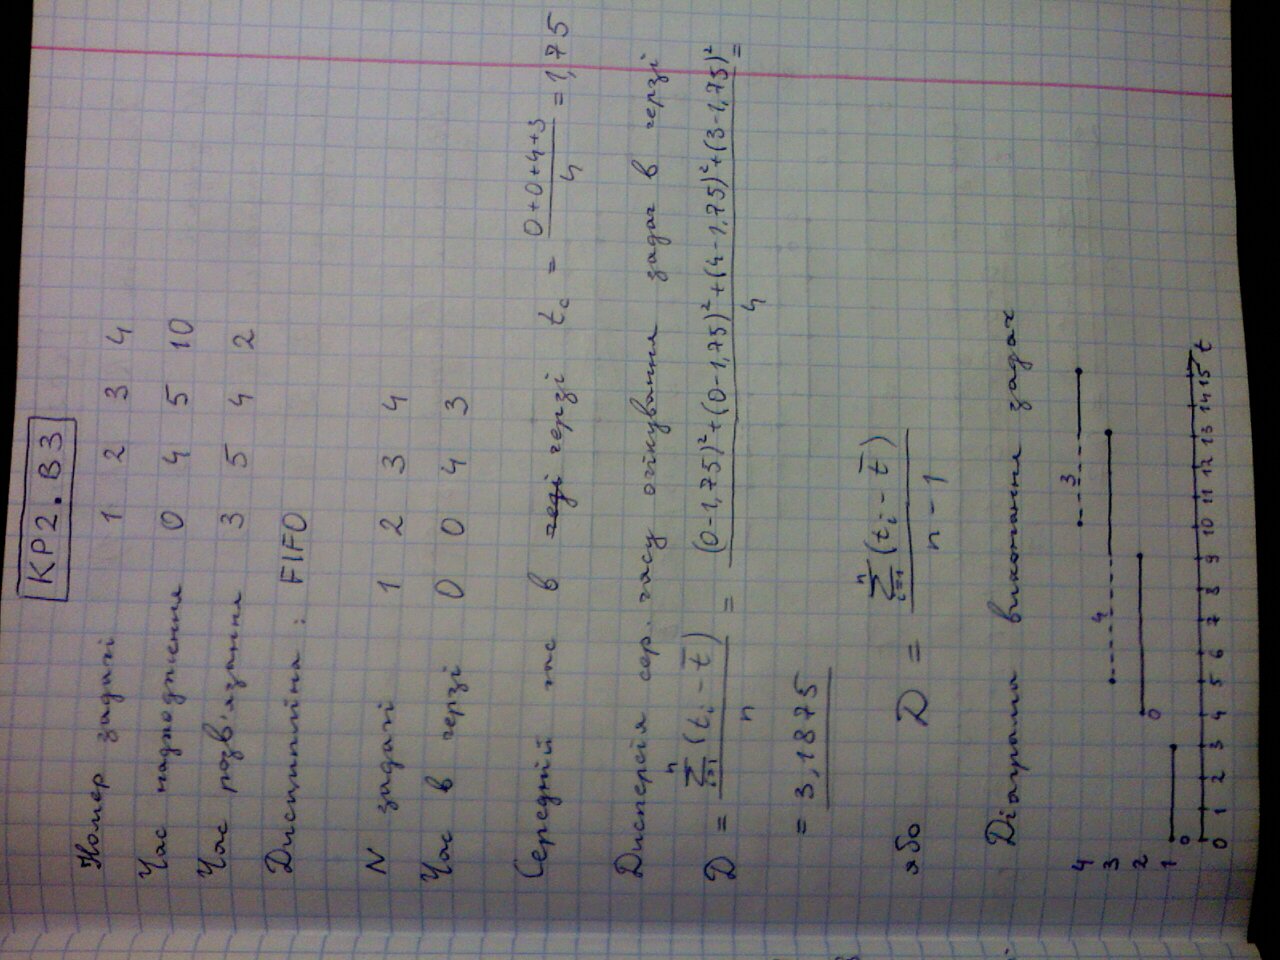 КР2. В3
Номер задачі 1 2 3 4
Час надходження 0 4 5 10
Час розв'язання 3 5 4 2
Дисципліна: FIFO
N задачі 1 2 3 4
Час в черзі 0 0 4 3
Середній час в черзі tc = (0+0+4+3)/4 = 1,75
Дисперсія сер. часу очікування задач в черзі
D = ∑ⁿᵢ₌₁(tᵢ - t̅)/n = ((0-1,75)²+(0-1,75)²+(4-1,75)²+(3-1,75)²)/4 =
= 3,1875
або D = ∑ⁿᵢ₌₁(tᵢ - t̅)/(n - 1)
Діаграма виконання задач
4 3
3 4
2 0
1 0
0 1 2 3 4 5 6 7 8 9 10 11 12 13 14 15 t